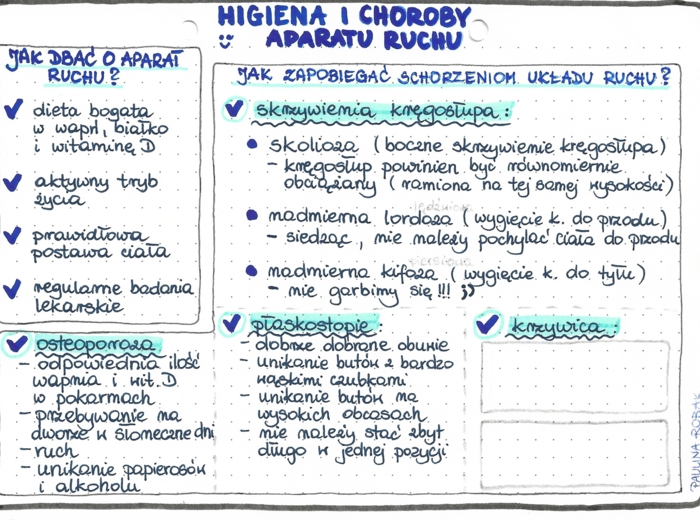 HIGIENA I CHOROBY
APARATU RUCHU
JAK DBAĆ O APARAT
RUCHU?
dieta bogata
w wapń, białko
i witaminę D
aktywny tryb
życia
prawidłowa
postawa ciała
regularne badania
lekarskie
JAK ZAPOBIEGAĆ SCHORZENIOM UKŁADU RUCHU?
skrzywienia kręgosłupa:
skolioza (boczne skrzywienie kręgosłupa)
- kręgosłup powinien być równomiernie
obciążany (ramiona na tej samej wysokości)
nadmierna lordoza (wygięcie k. do przodu)
- siedząc, nie należy pochylać ciała do przodu
nadmierna kifoza (wygięcie k. do tyłu)
- nie garbimy się!!! ;)
osteoporoza
- odpowiednia ilość
wapnia i wit. D
w pokarmach
- przebywanie na
dworze w słoneczne dni
- ruch
- unikanie papierosów
i alkoholu
płaskostopie:
- dobrze dobrane obuwie
- unikanie butów z bardzo
wąskimi czubkami
- unikanie butów na
wysokich obcasach
- nie należy stać zbyt
długo w jednej pozycji
krzywica:
PAULINA ROSAK